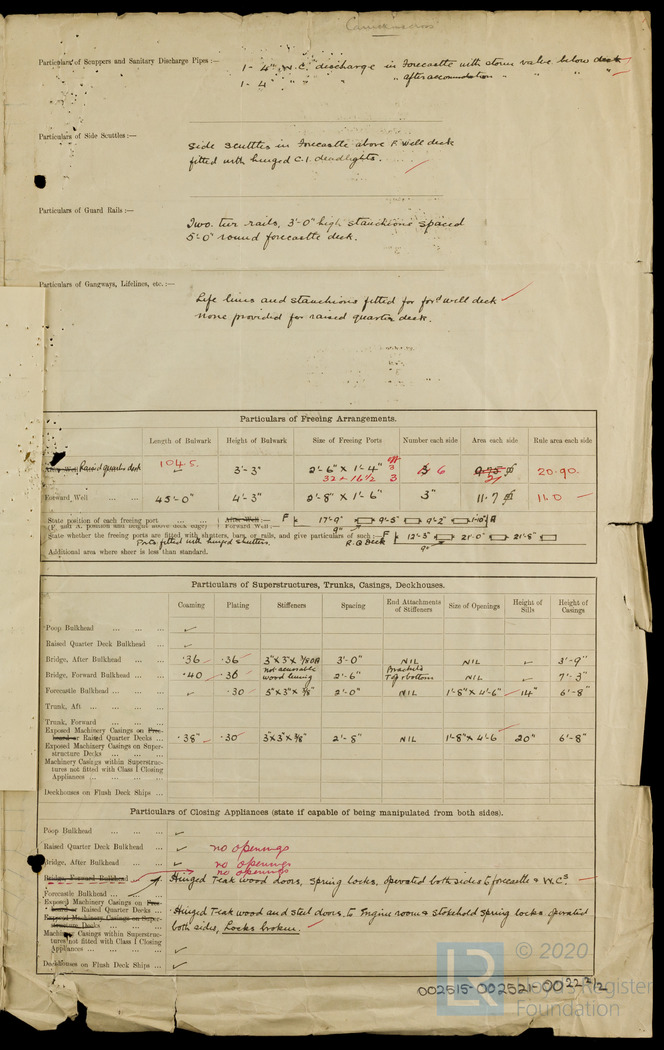 Particulars of Scuppers and Sanitary Discharge Pipes :—
1 - 4" W.C. discharge in Forecastle with storm valve below deck
1 - 4" " " " " after accommodation " " "
Particulars of Side Scuttles :—
Side scuttles in Forecastle above F. Well deck
fitted with hinged C.I. deadlights.
Particulars of Guard Rails :—
Two tier rails, 3'-0" high stanchions spaced
5'-0" round forecastle deck.
Particulars of Gangways, Lifelines, etc. :—
Life lines and stanchions fitted for for'd well deck
none provided for raised quarter deck.
Particulars of Freeing Arrangements.
Length of Bulwark Height of Bulwark Size of Freeing Ports Number each side Area each side Rule area each side
After Well Raised quarter deck 104.5 3'-3" 2'-6" x 1'-4" 3 6 20.90
32 x 16 1/2 3 21
Forward Well ... ... 45'-0" 4'-3" 2'-8" x 1'-6" 3" 11.7 11.0
State position of each freeing port ... ... After Well :— F 17'-9" 9'-5" 9'-2" 1'-10" A
(F. and A. position and height above deck edge) Forward Well :— 9"
State whether the freeing ports are fitted with shutters, bars, or rails, and give particulars of such :— F 12'-5" 21'-0" 21'-8"
Ports fitted with hinged shutters. R.Q. Deck 9"
Additional area where sheer is less than standard.
Particulars of Superstructures, Trunks, Casings, Deckhouses.
Coaming Plating Stiffeners Spacing End Attachments of Stiffeners Size of Openings Height of Sills Height of Casings
Poop Bulkhead ... ... ...
Raised Quarter Deck Bulkhead ...
Bridge, After Bulkhead ... ... .36 .36 3" x 3" x 3/8 OA 3'-0" NIL NIL 3'-9"
Bridge, Forward Bulkhead ... ... .40 .36 wood lining 2'-6" Brackets Top & bottom NIL 7'-3"
Forecastle Bulkhead ... ... ... .30 3" x 3" x 3/8" 2'-0" NIL 1'-8" x 4'-6" 14" 6'-8"
Trunk, Aft ... ... ... ...
Trunk, Forward ... ... ...
Exposed Machinery Casings on Free-
board or Raised Quarter Decks ... .38" .30 3" x 3" x 3/8" 2'-8" NIL 1'-8" x 4'-6 20" 6'-8"
Exposed Machinery Casings on Super-
structure Decks ... ... ...
Machinery Casings within Superstruc-
tures not fitted with Class I Closing
Appliances ... ... ... ...
Deckhouses on Flush Deck Ships ...
Particulars of Closing Appliances (state if capable of being manipulated from both sides).
Poop Bulkhead ... ... ...
Raised Quarter Deck Bulkhead ... no openings
Bridge, After Bulkhead ... ... no openings
no openings
Bridge, Forward Bulkhead ...
Forecastle Bulkhead ... ... ... Hinged Teak wood doors, spring locks, operated both sides to forecastle & W.Cs.
Exposed Machinery Casings on Free-
board or Raised Quarter Decks ... Hinged Teak wood and steel doors to Engine room & stokehold spring locks operated
Exposed Machinery Casings on Super-
structure Decks ... ... ... both sides, Locks broken.
Machinery Casings within Superstruc-
tures not fitted with Class I Closing
Appliances ... ... ... ...
Deckhouses on Flush Deck Ships ...
© 2020
LR Lloyd's Register
Foundation
002515-002521-0022 2/2